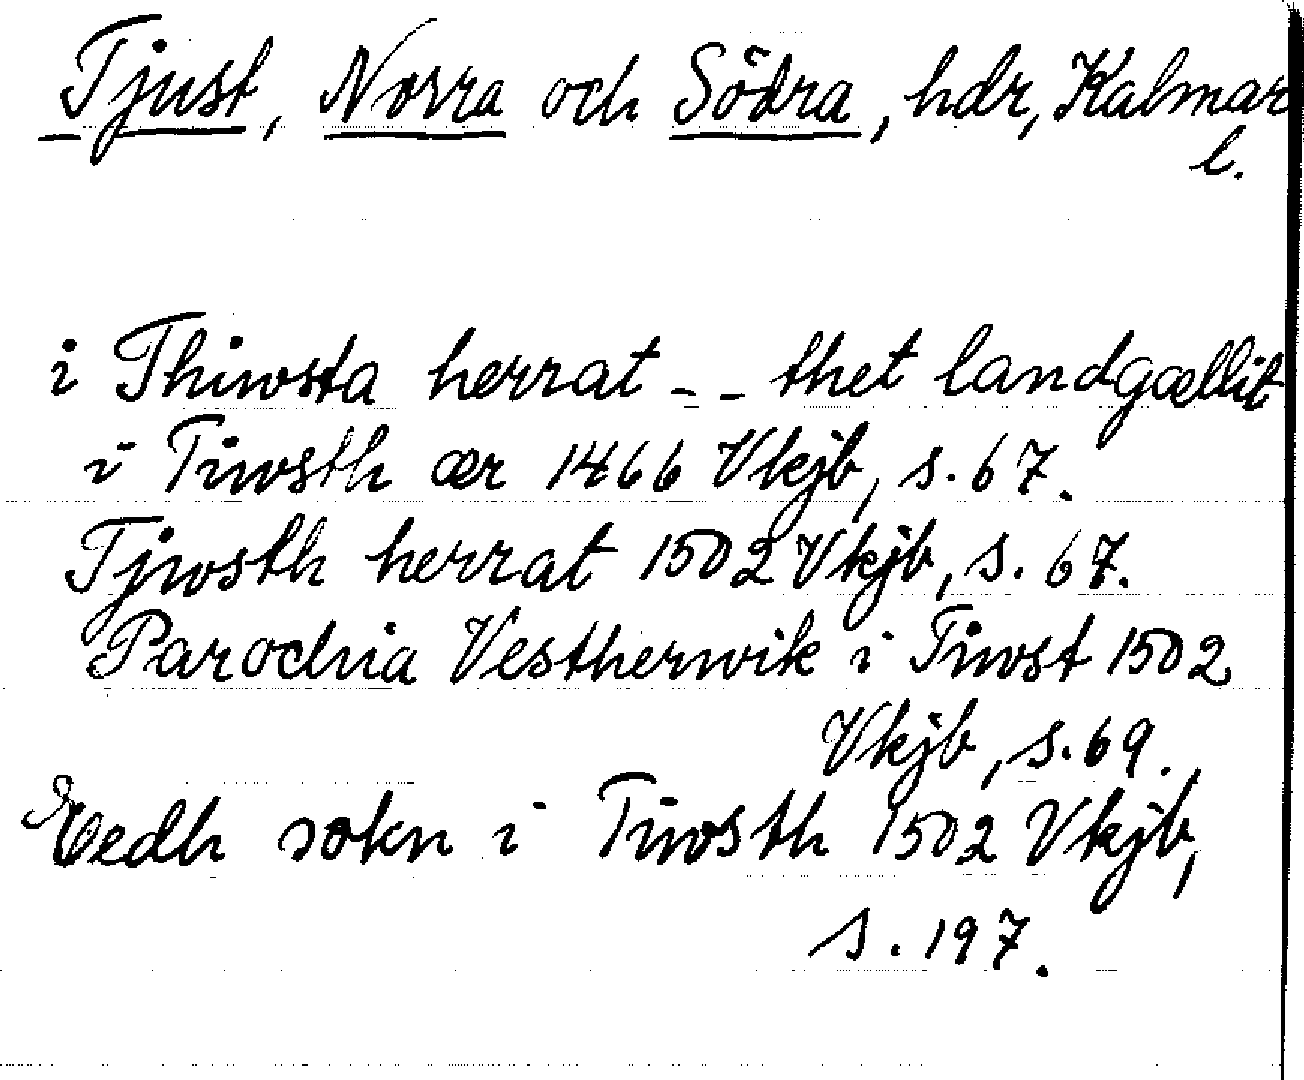 Tjust, Norra och Södra, hdr, Kalmar
l.
i Thiwsta herrat - - thet landgællit
i Tiwsth ær 1466 Vkjb, s. 67.
Tjwsth herrat 1502 Vkjb, s. 67.
Parochia Vestherwik i Tiwst 1502
Vkjb, s. 69.
Eedh sokn i Tiwsth 1502 Vkjb,
s. 197.